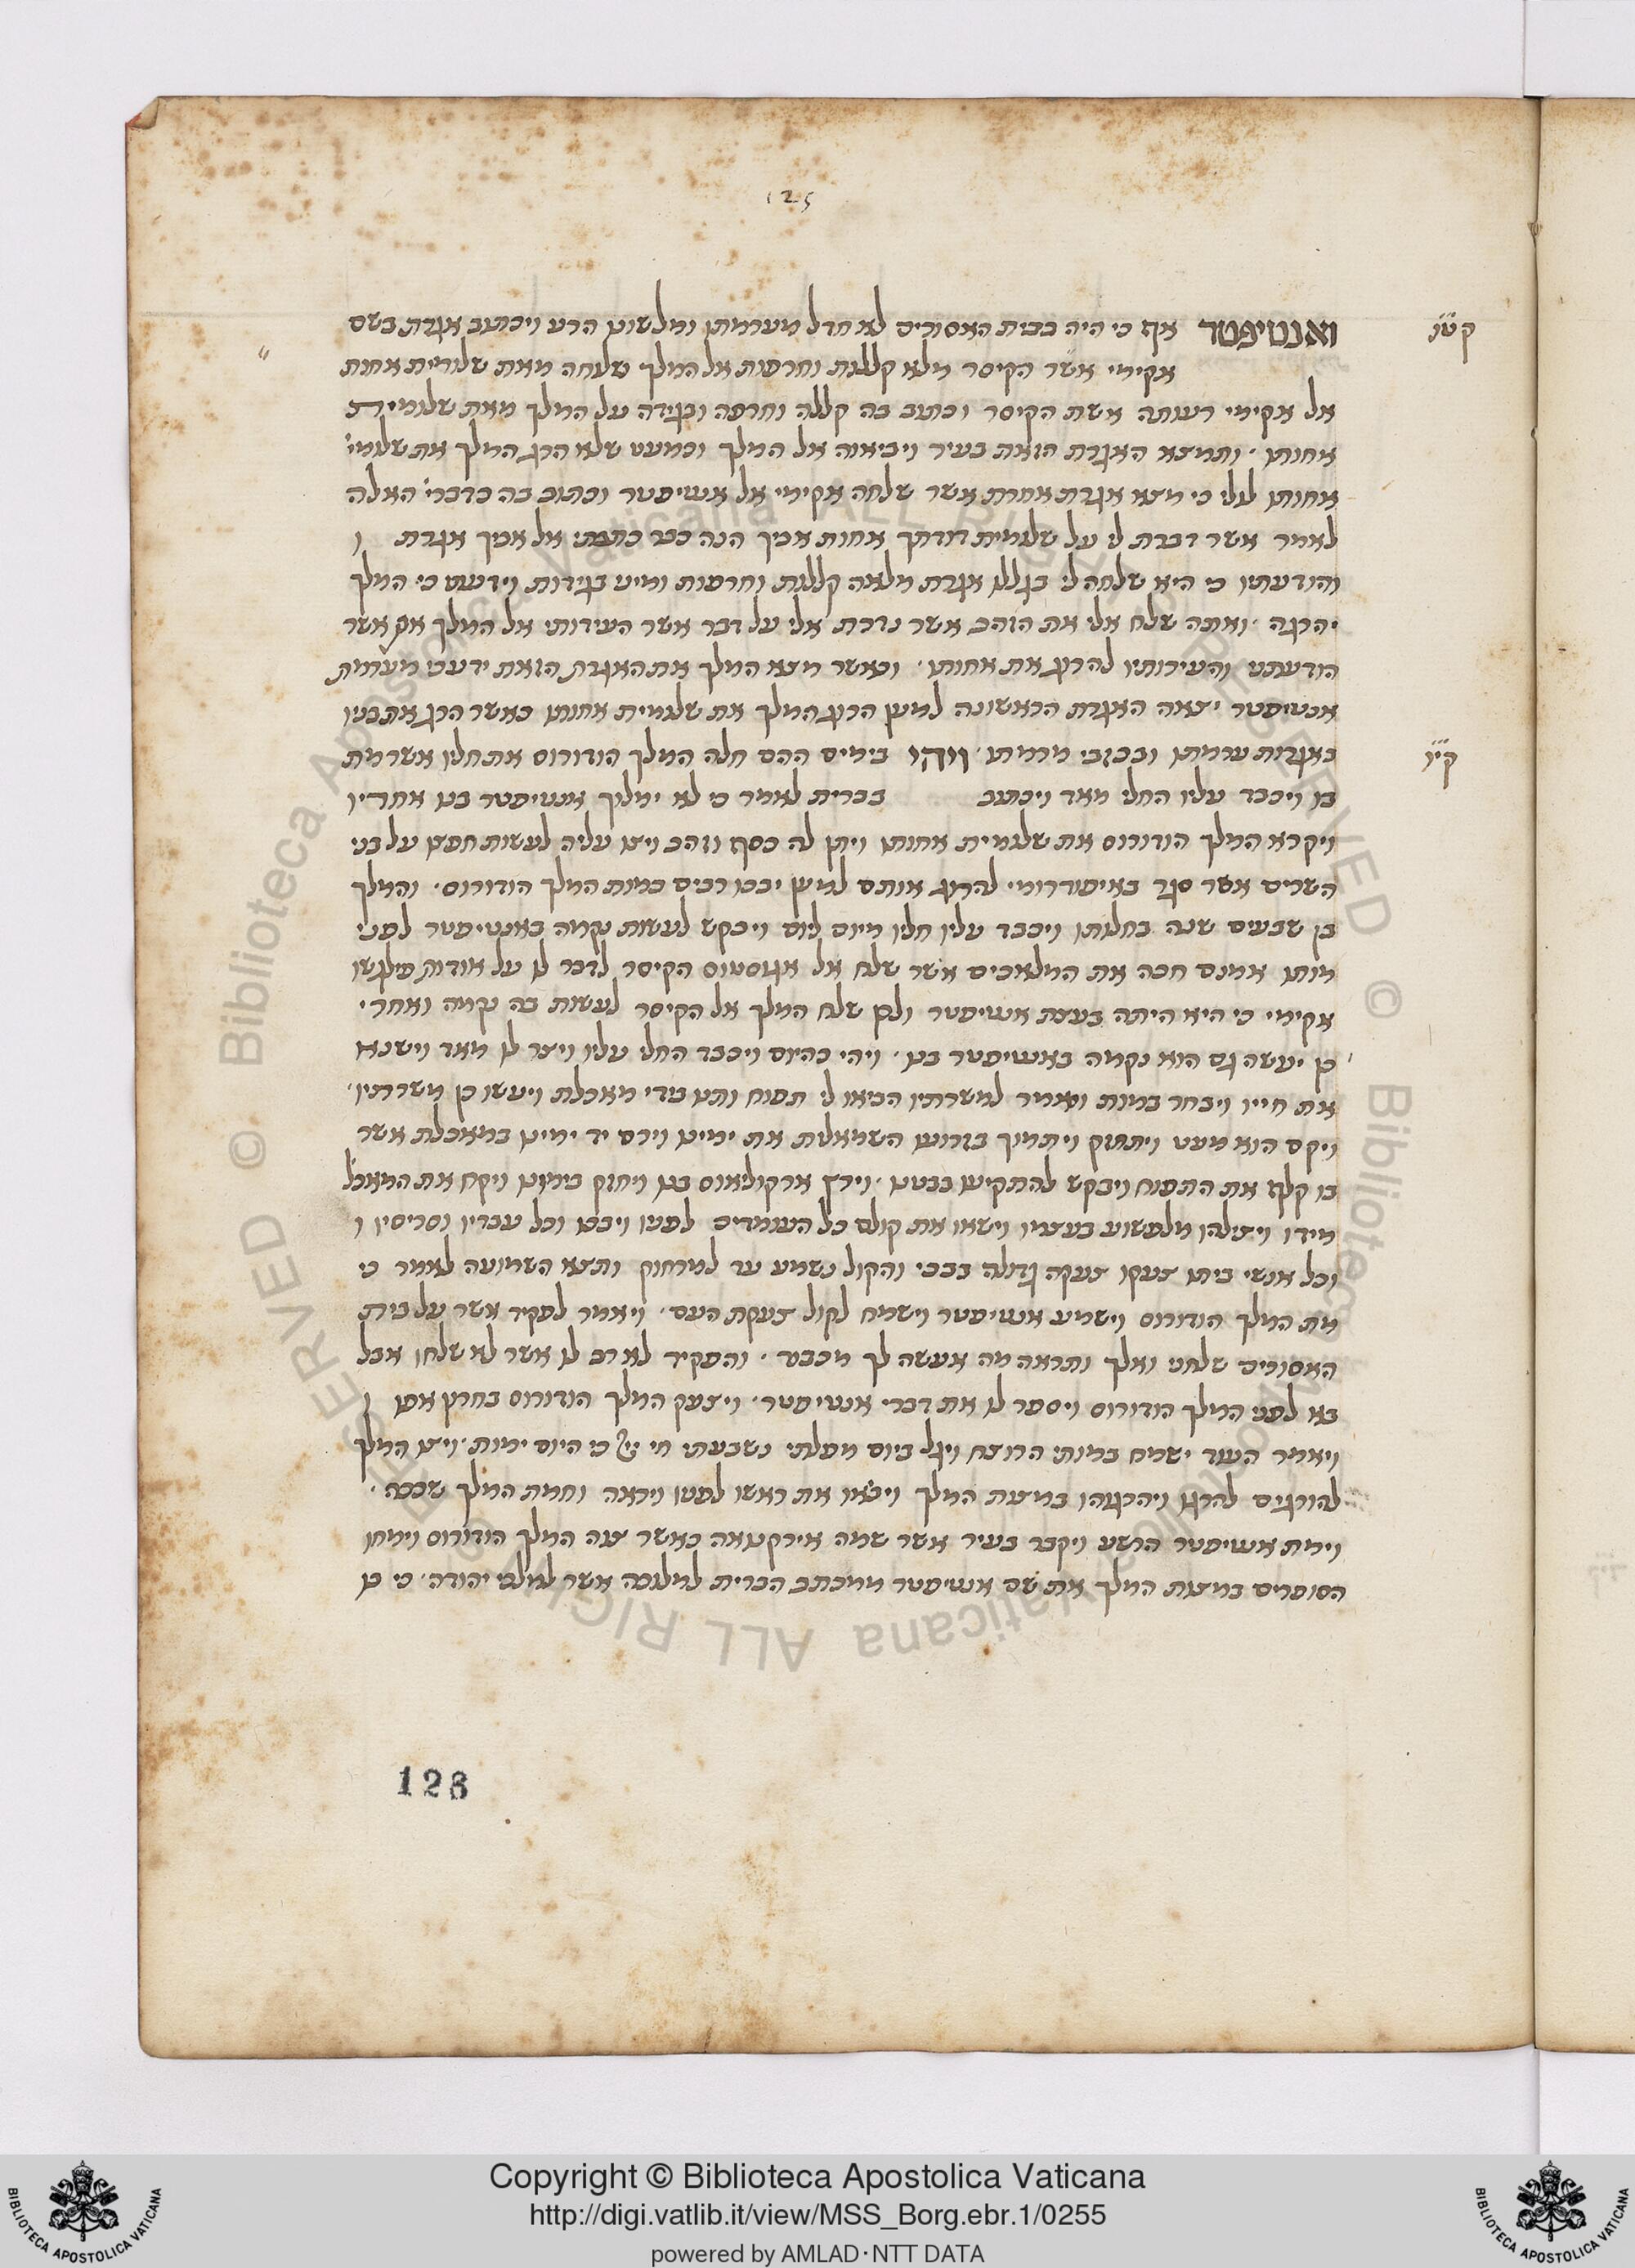 125
קטז
ואנטיפטר אף כי היה בבית האסורים לא חדל מערמתו ומלשונו הרע ויכתוב אגרת בשם
אקימי אשר הקיסר מלא קללות וחרפות אל המלך שלוחה מאת שלומית אחות
אל אקימי רעותה אשת הקיסר וכתוב בה קללה וחרפה ובגידה על המלך מאת שלומית
אחותו ותמצא האגרת הזאת בעיר ויביאוה אל המלך וכמעט שלא הרג המלך את שלומי׳
אחותו לולי כי מצא אגרת אחרת אשר שלחה אקימי אל אנטיפטר וכתוב בה כדברי׳ האלה
לאמר אשר דברת לי על שלומית דודתך אחות אביך הנה כבר כתבתי אל אביך אגרת ו
והודעתיו כי היא שלחה לי בגללו אגרת מלאה קללות וחרפות ומיני בגידות וידעתי כי המלך
יהרגה ואתה שלח אלי את הזהב אשר נדרת אלי על דבר אשר העידותי אל המלך אף אשר
הודעתיו והעירותיו להרוג את אחותו וכאשר מצא המלך את האגרת הזאת ידע כי מערמת
אנטיפטר יצאה האגרת הראשונה למען הרוג המלך את שלומית אחותו כאשר הרג את בניו
קיז
באגרות ערמתו ובכזבי מרמתו ויהי בימים ההם חלה המלך הורודוס את חליו אשר מת
בו ויכבד עליו החלי מאד ויכתוב בברית לאמר כי לא ימלוך אנטיפטר בנו אחריו
ויקרא המלך הורודוס את שלומית אחותו ויתן לה כסף וזהב ויצו עליה לעשות חפצו על בני
השרים אשר סגר באיפודרומי להרוג אותם למען יבכו רבים במות המלך הורודוס והמלך
בן שבעים שנה בחלותו ויכבד עליו חליו מיום ליום ויבקש לעשות נקמה באנטיפטר לפני
מותו אמנם חכה את המלאכים אשר שלח אל אגוסטוס הקיסר לדבר לו על אודות פילגשו
אקימי כי היא היתה בעצת אנטיפטר ולכן שלח המלך אל הקיסר לעשות בה נקמה ואחרי
כן יעשה גם הוא נקמה באנטיפטר בנו ויהי כהיום ויכבד החלי עליו ויצר לו מאד וישנא
את חייו ויבחר במות ויאמר למשרתיו הביאו לי תפוח ותנו בידי מאכלת ויעשו כן משרתיו
ויקם הוא מעט ויתחזק ויתמוך בזרועו השמאלית את ימינו וירם יד ימינו במאכלת אשר
בו קלף את התפוח ויבקש להתקיעו בבטנו וירץ ארקולאוס בנו ויחזק בימינו ויקח את המאכל׳
מידו ויצילהו מלפשוע בעצמו וישאו את קולם כל העומדים לפניו ויבכו וכל עבדיו וסריסיו ו
וכל אנשי ביתו צעקו צעקה גדולה בבכי והקול נשמע עד למרחוק ותצא השמועה לאמר כי
מת המלך הורודוס וישמע אנטיפטר וישמח לקול צעקת העם ויאמר לפקיד אשר על בית
האסורים שלחני ואלך ותראה מה אעשה לך מכבוד והפקיד לא רב לו אשר לא שלחו אבל
בא לפני המלך הורודוס ויספר לו את דברי אנטיפטר ויצעק המלך הורודוס בחרון אפו ו
ויאמר העוד ישמח במותי הרוצח ויגל ביום מפלתי נשבעתי חי ייי כי היום ימות ויצו המלך
להורגים להרגו ויהרגוהו במצות המלך ויביאו את ראשו לפניו ויראה וחמת המלך שככה
וימת אנטיפטר הרשע ויקבר בעיר אשר שמה אירקניאה כאשר צוה המלך הורודוס וימחו
הסופרים במצות המלך את שם אנטיפטר ממכתב הברית למלוכה אשר למלכי יהודה כי כן
128
Copyright © Biblioteca Apostolica Vaticana
http://digi.vatlib.it/view/MSS_Borg.ebr.1/0255
powered by AMLAD·NTT DATA
BIBLIOTECA APOSTOLICA VATICANA
BIBLIOTECA APOSTOLICA VATICANA